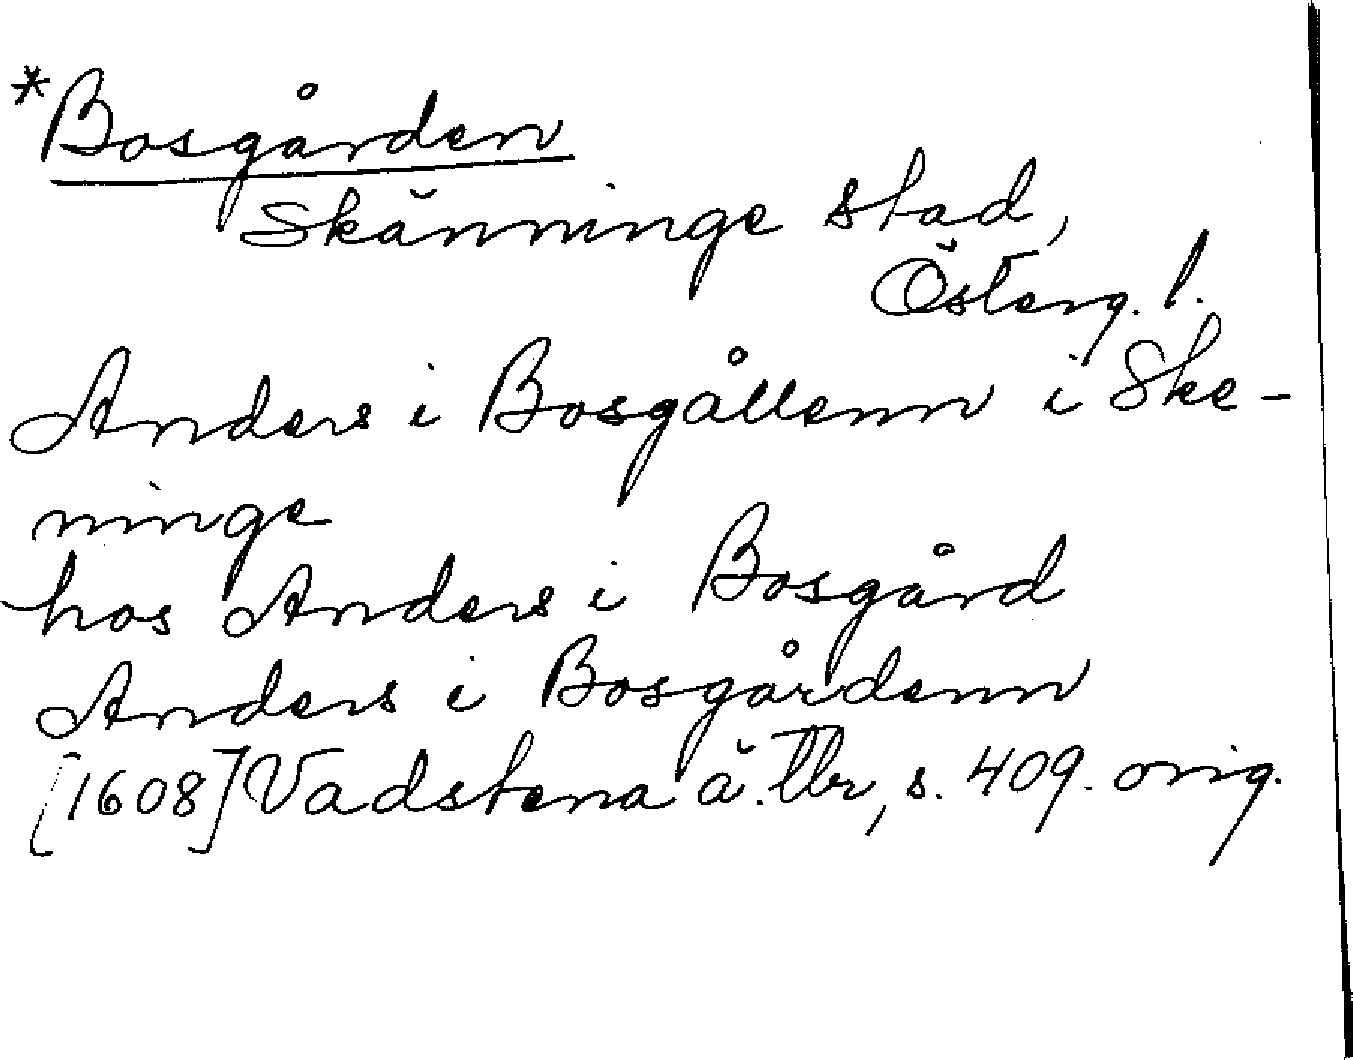 *Bosgården
Skänninge stad,
Österg. l.
Anders i Bosgållenn i Ske-
ninge
hos Anders i Bosgård
Anders i Bosgårdenn
[1608] Vadstena ä. tbr, s. 409. orig.